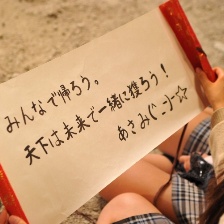 みんなで帰ろう。
天下は未来で一緒に獲ろう!
あさみ(ニジー☆